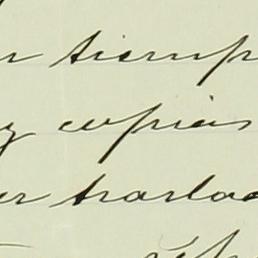 n tiemp
y copias
er traslad